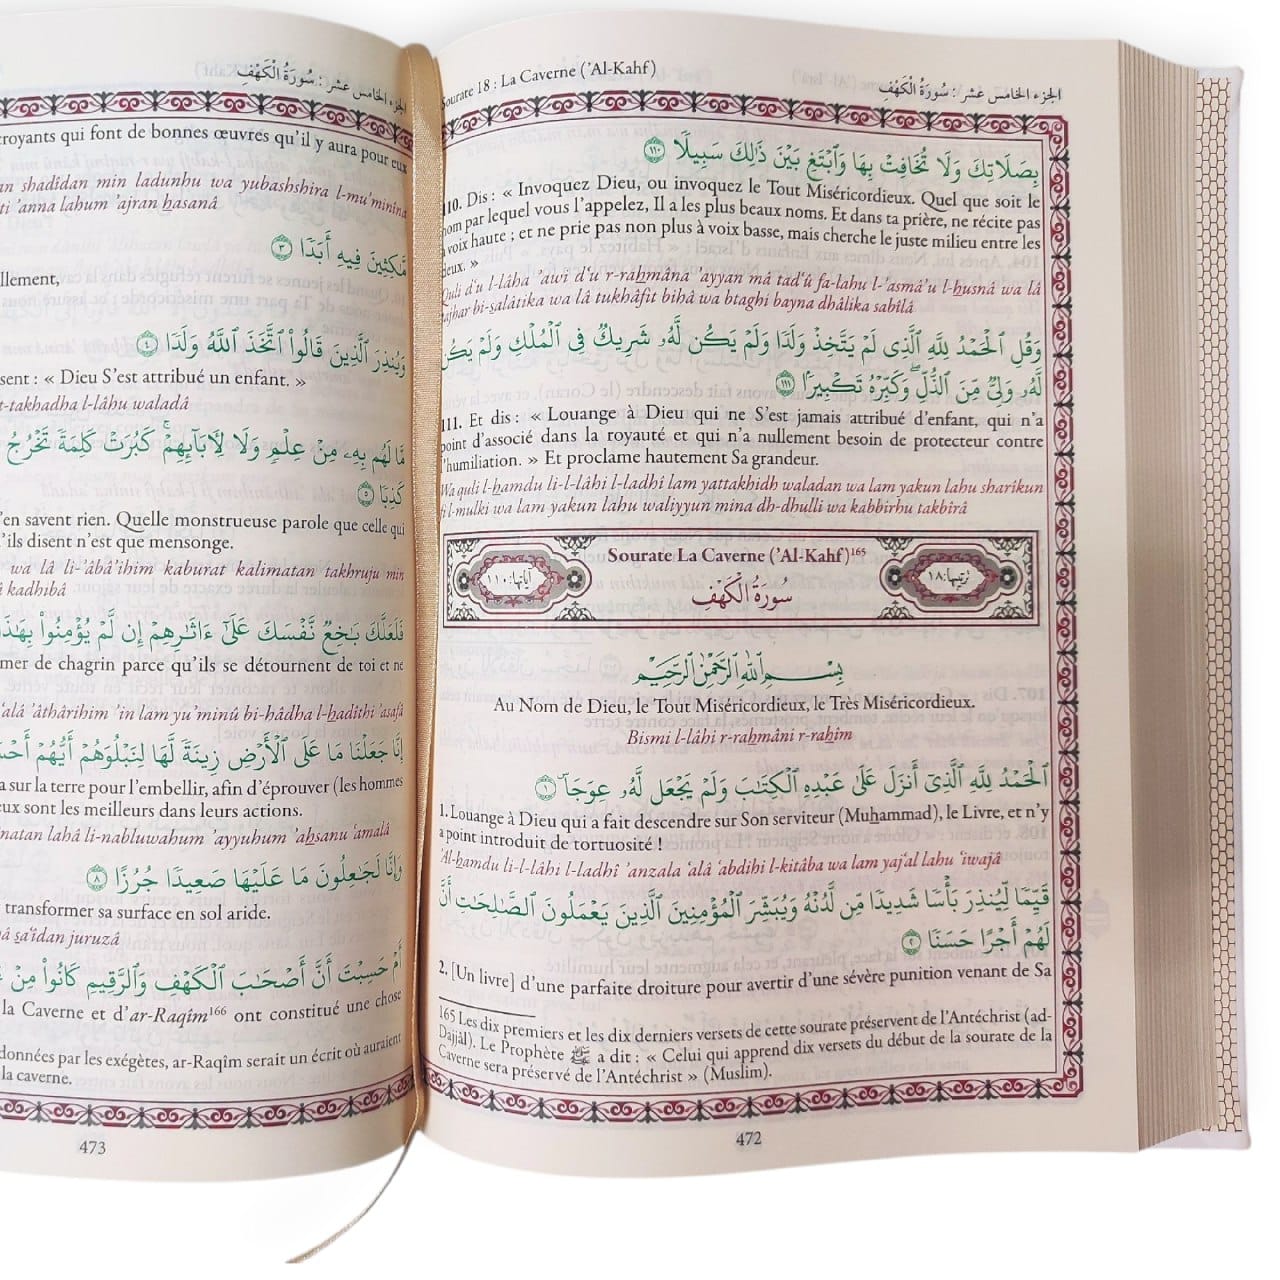 Sourate 18 : La Caverne (’Al-Kahf)
الجزء الخامس عشر : سُورَةُ الْكَهْفِ
بِصَلَاتِكَ وَلَا تُخَافِتْ بِهَا وَٱبْتَغِ بَيْنَ ذَٰلِكَ سَبِيلًا ١١٠
110. Dis : « Invoquez Dieu, ou invoquez le Tout Miséricordieux. Quel que soit le
nom par lequel vous l’appelez, Il a les plus beaux noms. Et dans ta prière, ne récite pas
à voix haute ; et ne prie pas non plus à voix basse, mais cherche le juste milieu entre les
deux. »
Quli d‘u l-lâha ’awi d‘u r-rahmâna ’ayyan mâ tad‘û fa-lahu l-’asmâ’u l-husnâ wa lâ
tajhar bi-salâtika wa lâ tukhâfit bihâ wa btaghi bayna dhâlika sabîlâ
وَقُلِ ٱلْحَمْدُ لِلَّهِ ٱلَّذِى لَمْ يَتَّخِذْ وَلَدًا وَلَمْ يَكُن لَّهُۥ شَرِيكٌ فِى ٱلْمُلْكِ وَلَمْ يَكُن
لَّهُۥ وَلِىٌّ مِّنَ ٱلذُّلِّ ۖ وَكَبِّرْهُ تَكْبِيرًۢا ١١١
111. Et dis : « Louange à Dieu qui ne S’est jamais attribué d’enfant, qui n’a
point d’associé dans la royauté et qui n’a nullement besoin de protecteur contre
l’humiliation. » Et proclame hautement Sa grandeur.
Wa quli l-hamdu li-l-lâhi l-ladhî lam yattakhidh waladan wa lam yakun lahu sharîkun
fi l-mulki wa lam yakun lahu waliyyun mina dh-dhulli wa kabbirhu takbîrâ
Sourate La Caverne (’Al-Kahf)165
آياتها: ١١٠
سورة الْكَهْفِ
رتيبها: ١٨
بِسْمِ اللَّهِ الرَّحْمَٰنِ الرَّحِيمِ
Au Nom de Dieu, le Tout Miséricordieux, le Très Miséricordieux.
Bismi l-lâhi r-rahmâni r-rahîm
ٱلْحَمْدُ لِلَّهِ ٱلَّذِىٓ أَنزَلَ عَلَىٰ عَبْدِهِ ٱلْكِتَٰبَ وَلَمْ يَجْعَل لَّهُۥ عِوَجَا ١
1. Louange à Dieu qui a fait descendre sur Son serviteur (Muhammad), le Livre, et n’y
a point introduit de tortuosité !
’Al-hamdu li-l-lâhi l-ladhî ’anzala ‘alâ ‘abdihi l-kitâba wa lam yaj‘al lahu ‘iwajâ
قَيِّمًا لِّيُنذِرَ بَأْسًا شَدِيدًا مِّن لَّدُنْهُ وَيُبَشِّرَ ٱلْمُؤْمِنِينَ ٱلَّذِينَ يَعْمَلُونَ ٱلصَّٰلِحَٰتِ أَنَّ
لَهُمْ أَجْرًا حَسَنًا ٢
2. [Un livre] d’une parfaite droiture pour avertir d’une sévère punition venant de Sa
165 Les dix premiers et les dix derniers versets de cette sourate préservent de l’Antéchrist (ad-
Dajjâl). Le Prophète ﷺ a dit : « Celui qui apprend dix versets du début de la sourate de la
Caverne sera préservé de l’Antéchrist » (Muslim).
472
الجزء الخامس عشر : سُورَةُ الْكَهْفِ
croyants qui font de bonnes œuvres qu’il y aura pour eux
an shadîdan min ladunhu wa yubashshira l-mu’minîna
ti ’anna lahum ’ajran hasanâ
مَّٰكِثِينَ فِيهِ أَبَدًا ٣
llement,
وَيُنذِرَ ٱلَّذِينَ قَالُوا۟ ٱتَّخَذَ ٱللَّهُ وَلَدًا ٤
sent : « Dieu S’est attribué un enfant. »
t-takhadha l-lâhu waladâ
مَّا لَهُم بِهِۦ مِنْ عِلْمٍ وَلَا لِءَابَآئِهِمْ ۚ كَبُرَتْ كَلِمَةً تَخْرُجُ
كَذِبًا ٥
’en savent rien. Quelle monstrueuse parole que celle qui
’ils disent n’est que mensonge.
wa lâ li-’âbâ’ihim kaburat kalimatan takhruju min
kadhibâ
فَلَعَلَّكَ بَٰخِعٌ نَّفْسَكَ عَلَىٰٓ ءَاثَٰرِهِمْ إِن لَّمْ يُؤْمِنُوا۟ بِهَٰذَا
mer de chagrin parce qu’ils se détournent de toi et ne
‘alâ ’âthârihim ’in lam yu’minû bi-hâdha l-hadîthi ’asafâ
إِنَّا جَعَلْنَا مَا عَلَى ٱلْأَرْضِ زِينَةً لَّهَا لِنَبْلُوَهُمْ أَيُّهُمْ
a sur la terre pour l’embellir, afin d’éprouver (les hommes
eux sont les meilleurs dans leurs actions.
natan lahâ li-nabluwahum ’ayyuhum ’ahsanu ‘amalâ
وَإِنَّا لَجَٰعِلُونَ مَا عَلَيْهَا صَعِيدًا جُرُزًا ٨
transformer sa surface en sol aride.
â sa‘îdan juruzâ
أَمْ حَسِبْتَ أَنَّ أَصْحَٰبَ ٱلْكَهْفِ وَٱلرَّقِيمِ كَانُوا۟ مِنْ
la Caverne et d’ar-Raqîm166 ont constitué une chose
données par les exégètes, ar-Raqîm serait un écrit où auraient
la caverne.
473